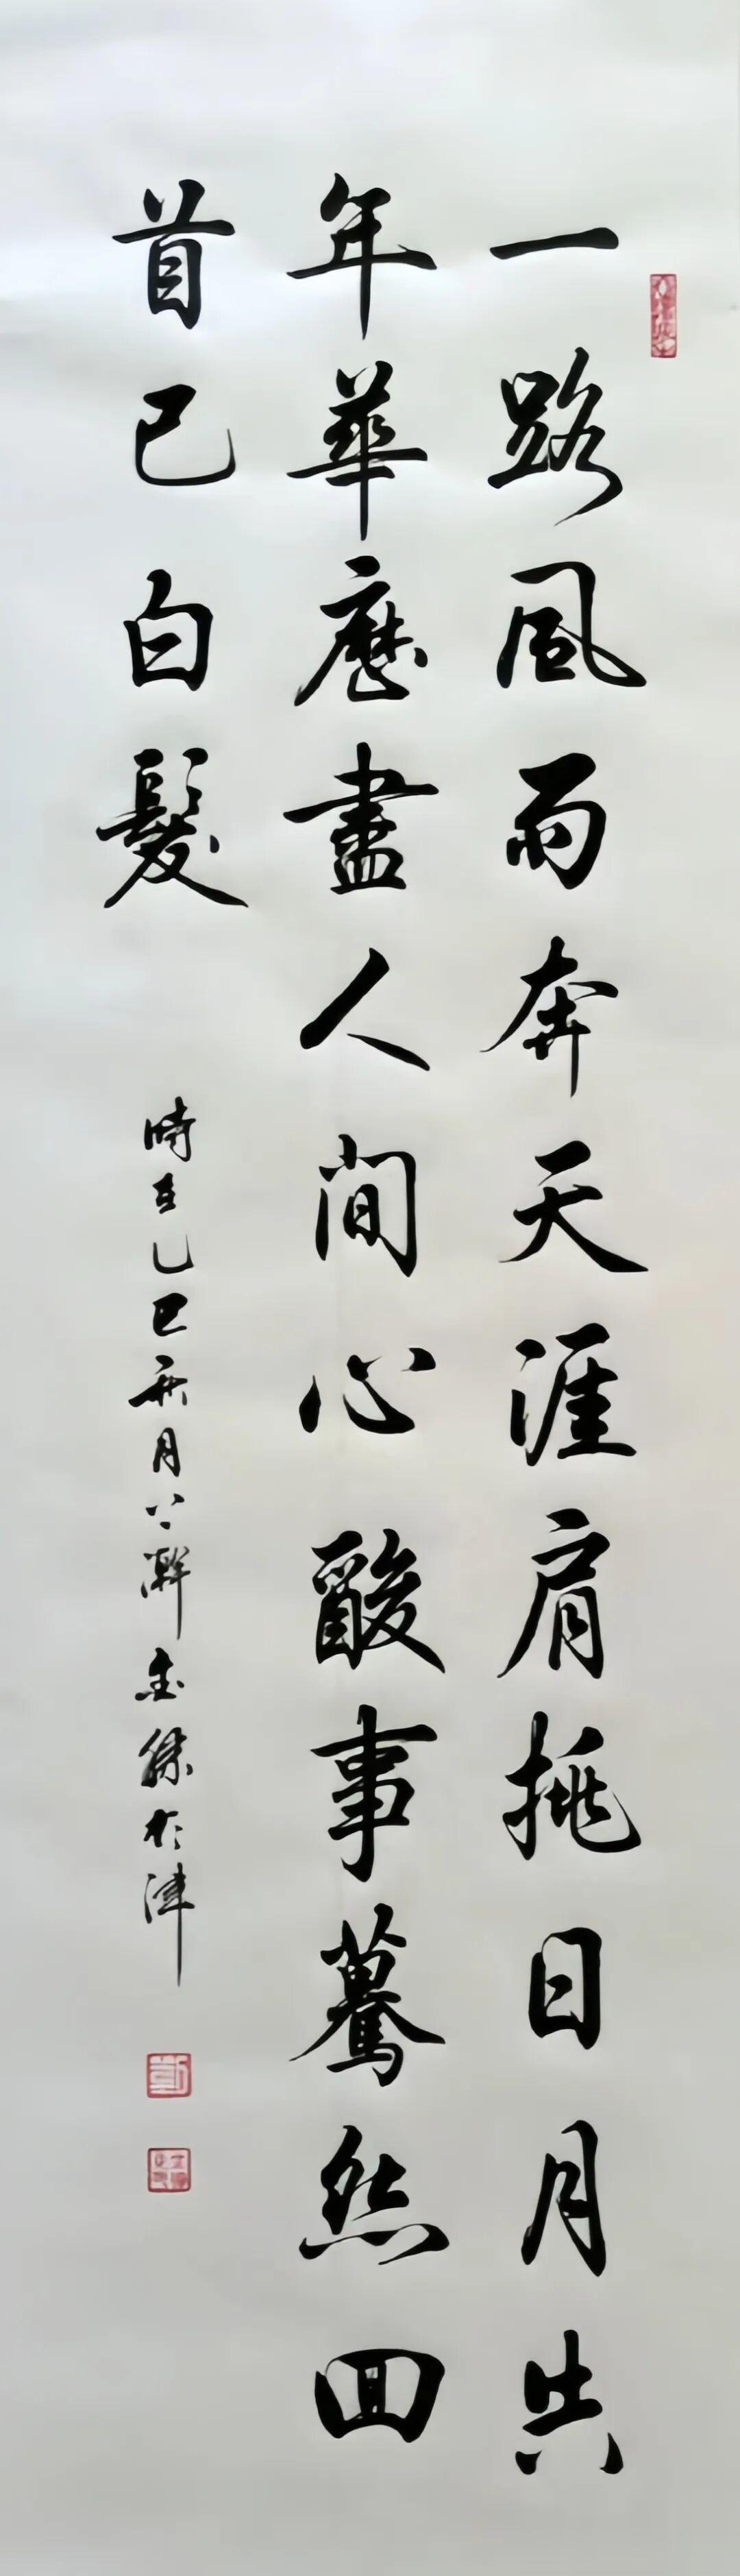 一路風雨奔天涯肩挑日月共
年華歷盡人間心酸事驀然回
首已白髮
時在乙巳秋月
於津